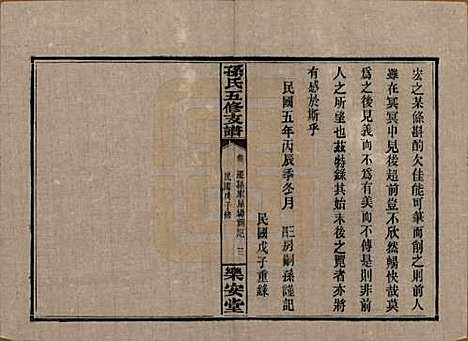 宏之某條斟酌欠佳能可筆而削之則前人
雖在冥冥中見後起超前豈不欣然暢快哉莫
為之後見義而不傳是則非前
人之所望也茲特錄其始末後之覽者亦將
有感於斯乎
民國五年丙辰季冬月 三房嗣孫謹記
民國戊子重錄
孫氏五修支譜
民國戊子修
樂安堂